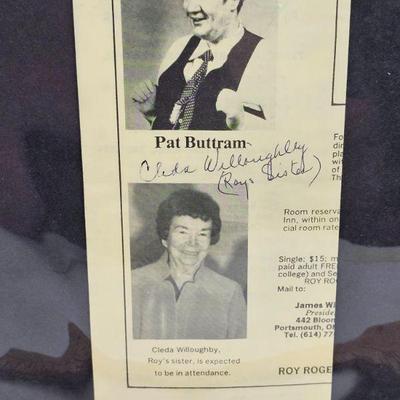 Pat Buttram
Cleda Willoughby
(Roys Sister)
Cleda Willoughby,
Roy's sister, is expected
to be in attendance.
Fo
di
pla
wi
of
Th
Room reserva
Inn, within on
cial room rate
Single: $15; m
paid adult FRE
college) and Se
ROY RO
Mail to:
James Wi
Preside
442 Bloom
Portsmouth, Oh
Tel. (614) 77
ROY ROGE